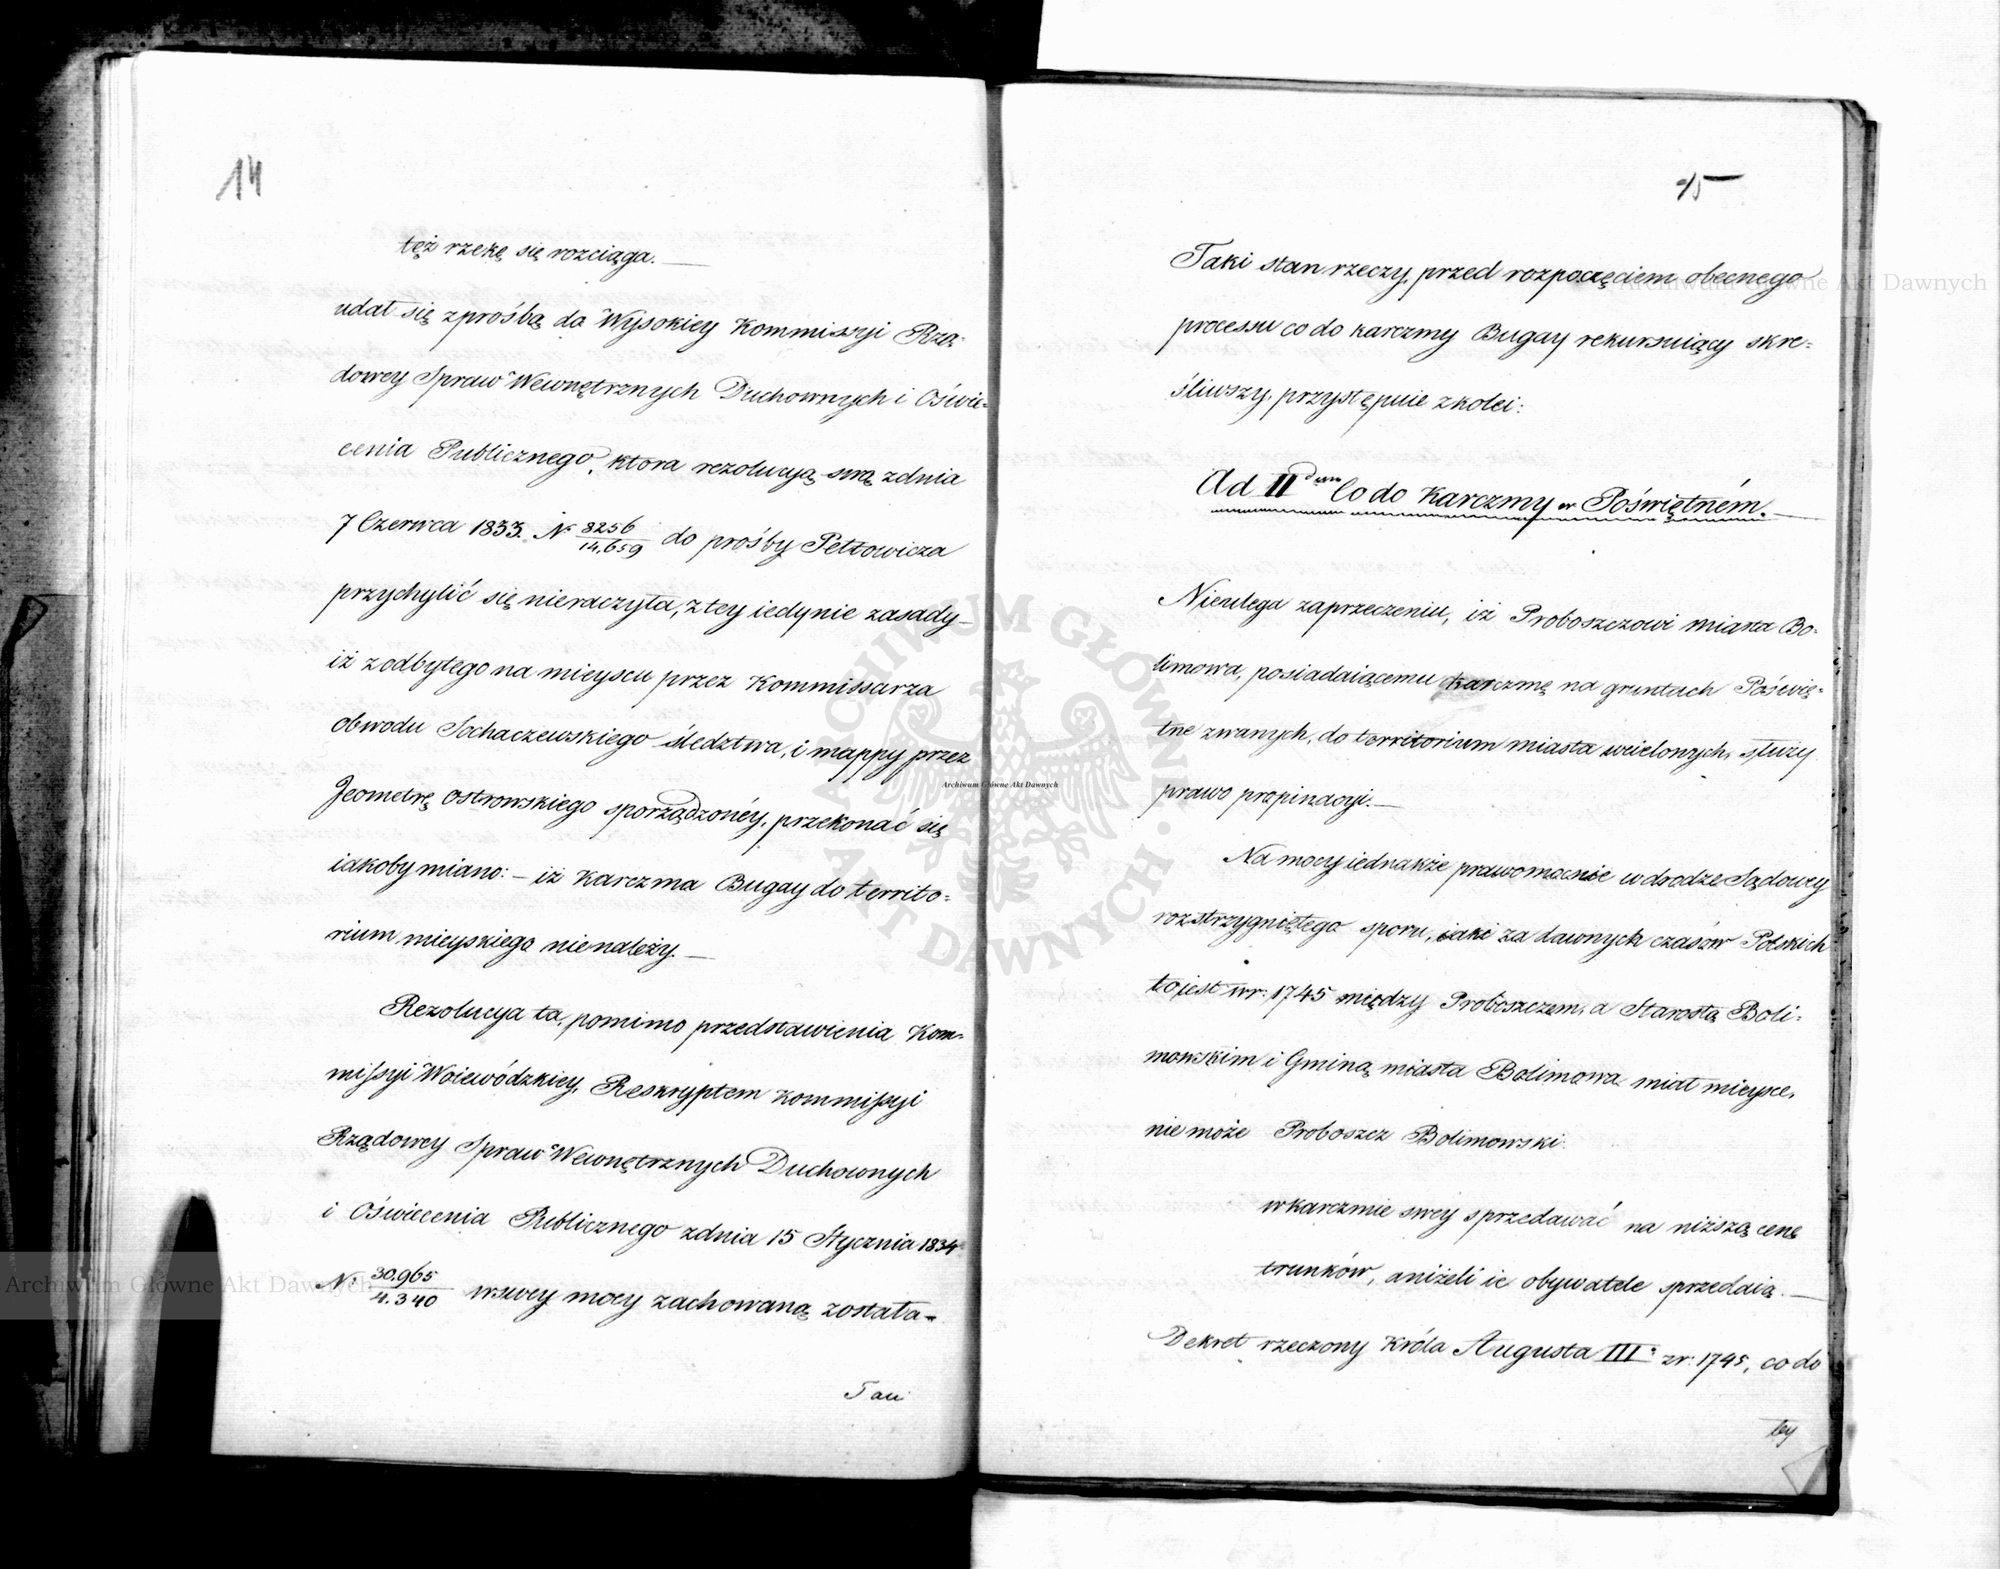 14
tęż rzekę się rozciąga. —
udał się z prośbą do Wysokiey Kommissyi Rzą=
dowey Spraw Wewnętrznych Duchownych i Oświe=
cenia Publicznego, ktora rezolucyą swą z dnia
7 Czerwca 1833. N 8256/14.659 do prośby Peltowicza
przychylić się nieraczyła, z tey iedynie zasady —
iż z odbytego na mieyscu przez Kommissarza
obwodu Sochaczewskiego śledztwa, i mappy przez
Jeometrę Ostrowskiego sporządzonéy, przekonać się
iakoby miano: — iż Karczma Bugay do territo=
rium mieyskiego nienależy. —
Rezolucya ta, pomimo przedstawienia Kom=
missyi Woiewódzkiey, Reskryptem Kommissyi
Rządowey Spraw Wewnętrznych Duchownych
i Oświecenia Publicznego z dnia 15 Stycznia 1834
N: 30.965/4.340 w swey mocy zachowaną została —
Taki
15
Taki stan rzeczy, przed rozpoczęciem obecnego
processu co do karczmy Bugay rekursuiący skre=
śliwszy, przystępuie z kolei:
Ad II dum Co do Karczmy w Poświętném. —
Nieulega zaprzeczeniu, iż Proboszczowi miasta Bo=
limowa, posiadaiącemu karczmę na gruntach Poświę=
tne zwanych, do territorium miasta wcielonych, służy
prawo propinacyi. —
Na mocy iednakże prawomocnie w drodze Sądowey
rozstrzygniętego sporu, iaki za dawnych czasów Polskich
to jest w r: 1745 między Proboszczem, a Starostą Boli=
mowskim i Gminą miasta Bolimowa miał mieysce,
nie może Proboszcz Bolimowski.
w karczmie swey sprzedawać na niższą cenę
trunków, aniżeli ie obywatele sprzedaią. —
Dekret rzeczony Króla Augusta III: z r: 1745, co do
tey
Archiwum Główne Akt Dawnych
Archiwum Główne Akt Dawnych
Archiwum Główne Akt Dawnych
ARCHIWUM GŁÓWNE AKT DAWNYCH